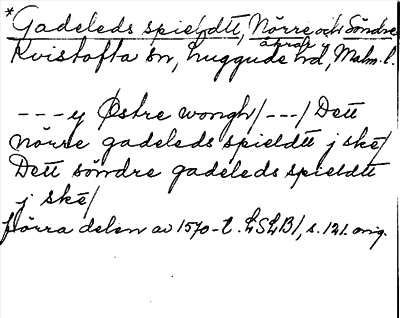 *Gadeleds spieldtt, Nörre och Söndre
åkrar
Kvistofta sn, Luggude hd, Malm. l.
---y Østre wongh/---/Dett
nörre gadeleds spieldtt j skē/
Dett söndre gadeleds spieldtt
j skē/
förra delen av 1570-t. LSLB1, s. 121. orig.